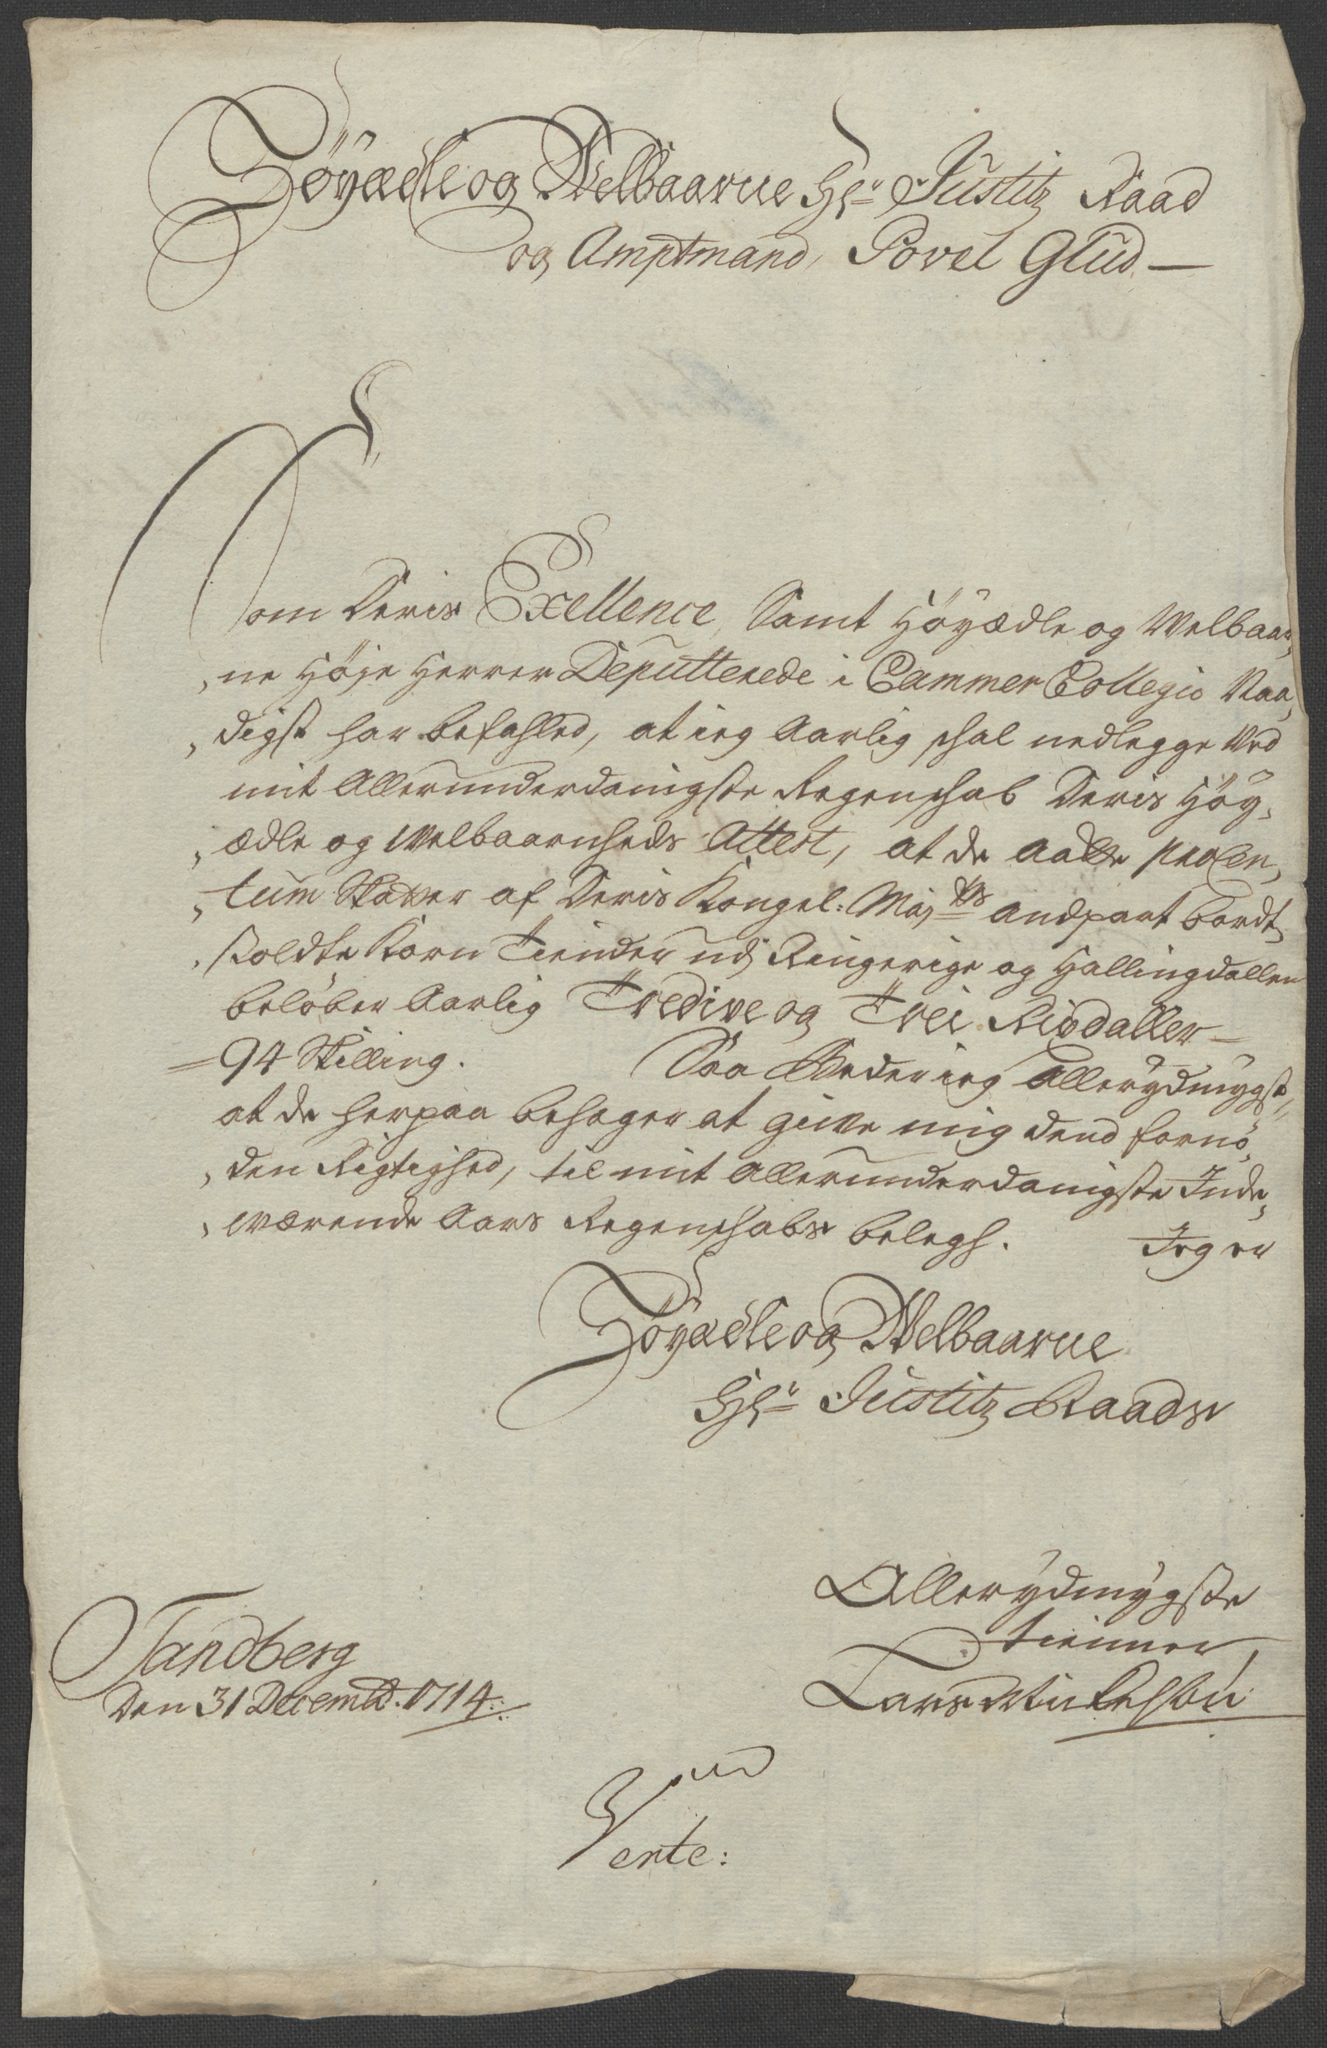 Høyædle og Welbaarne Hr Justitz Raad
og Amptmand, Povel Glud
Som Deris Exellence, Samt Høyædle og Welbaar,
,ne Høje Herrer Deputterede i Cammer Collegio Naa,
,digst har befahled, at ieg Aarlig schal nedlegge Ved
mit Allerunderdanigste Regenschab Deris Høy,
,ædle og Welbaarnheds Attest, at de
,tum Skatter af Deris Kongel: Maj,ts andpart bordt,
,soldte Korn Tiender udj Ringerige og Hallingdallen
beløber Aarlig Tredive og Trei Rixdaller
94 Skilling. Saa Beder ieg Allerydmygst,
at de herpaa behager at give mig dend fornø,
,den Rigtighed, til mit allerunderdanigste Inde,
,wærende Aars Regenschabs belegh. Jeg er
Høyædle og Welbaarne
Hr Justitz Raads
Allerydmygste
tienner
Sandberg
Den 31 Decembr. 1714.
Lars
Verte: